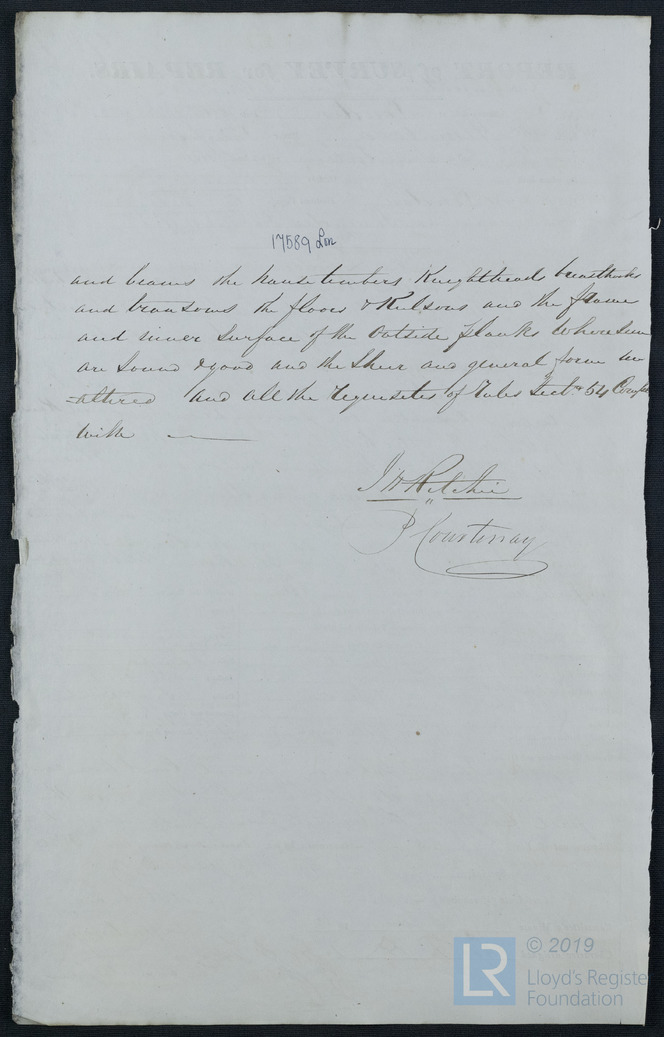 17589 Lon
and beams the hause timbers Knightheads breasthooks
and transoms the floors & Kelsons and the frame
and inner surface of the outside planks where seen
are sound & good and the Sheer and general form un
=altered and all the requisites of Rules Sectn 54 Compd
with
J H Ritchie
P Courtenay
© 2019
LR
Lloyd's Registe
Foundation